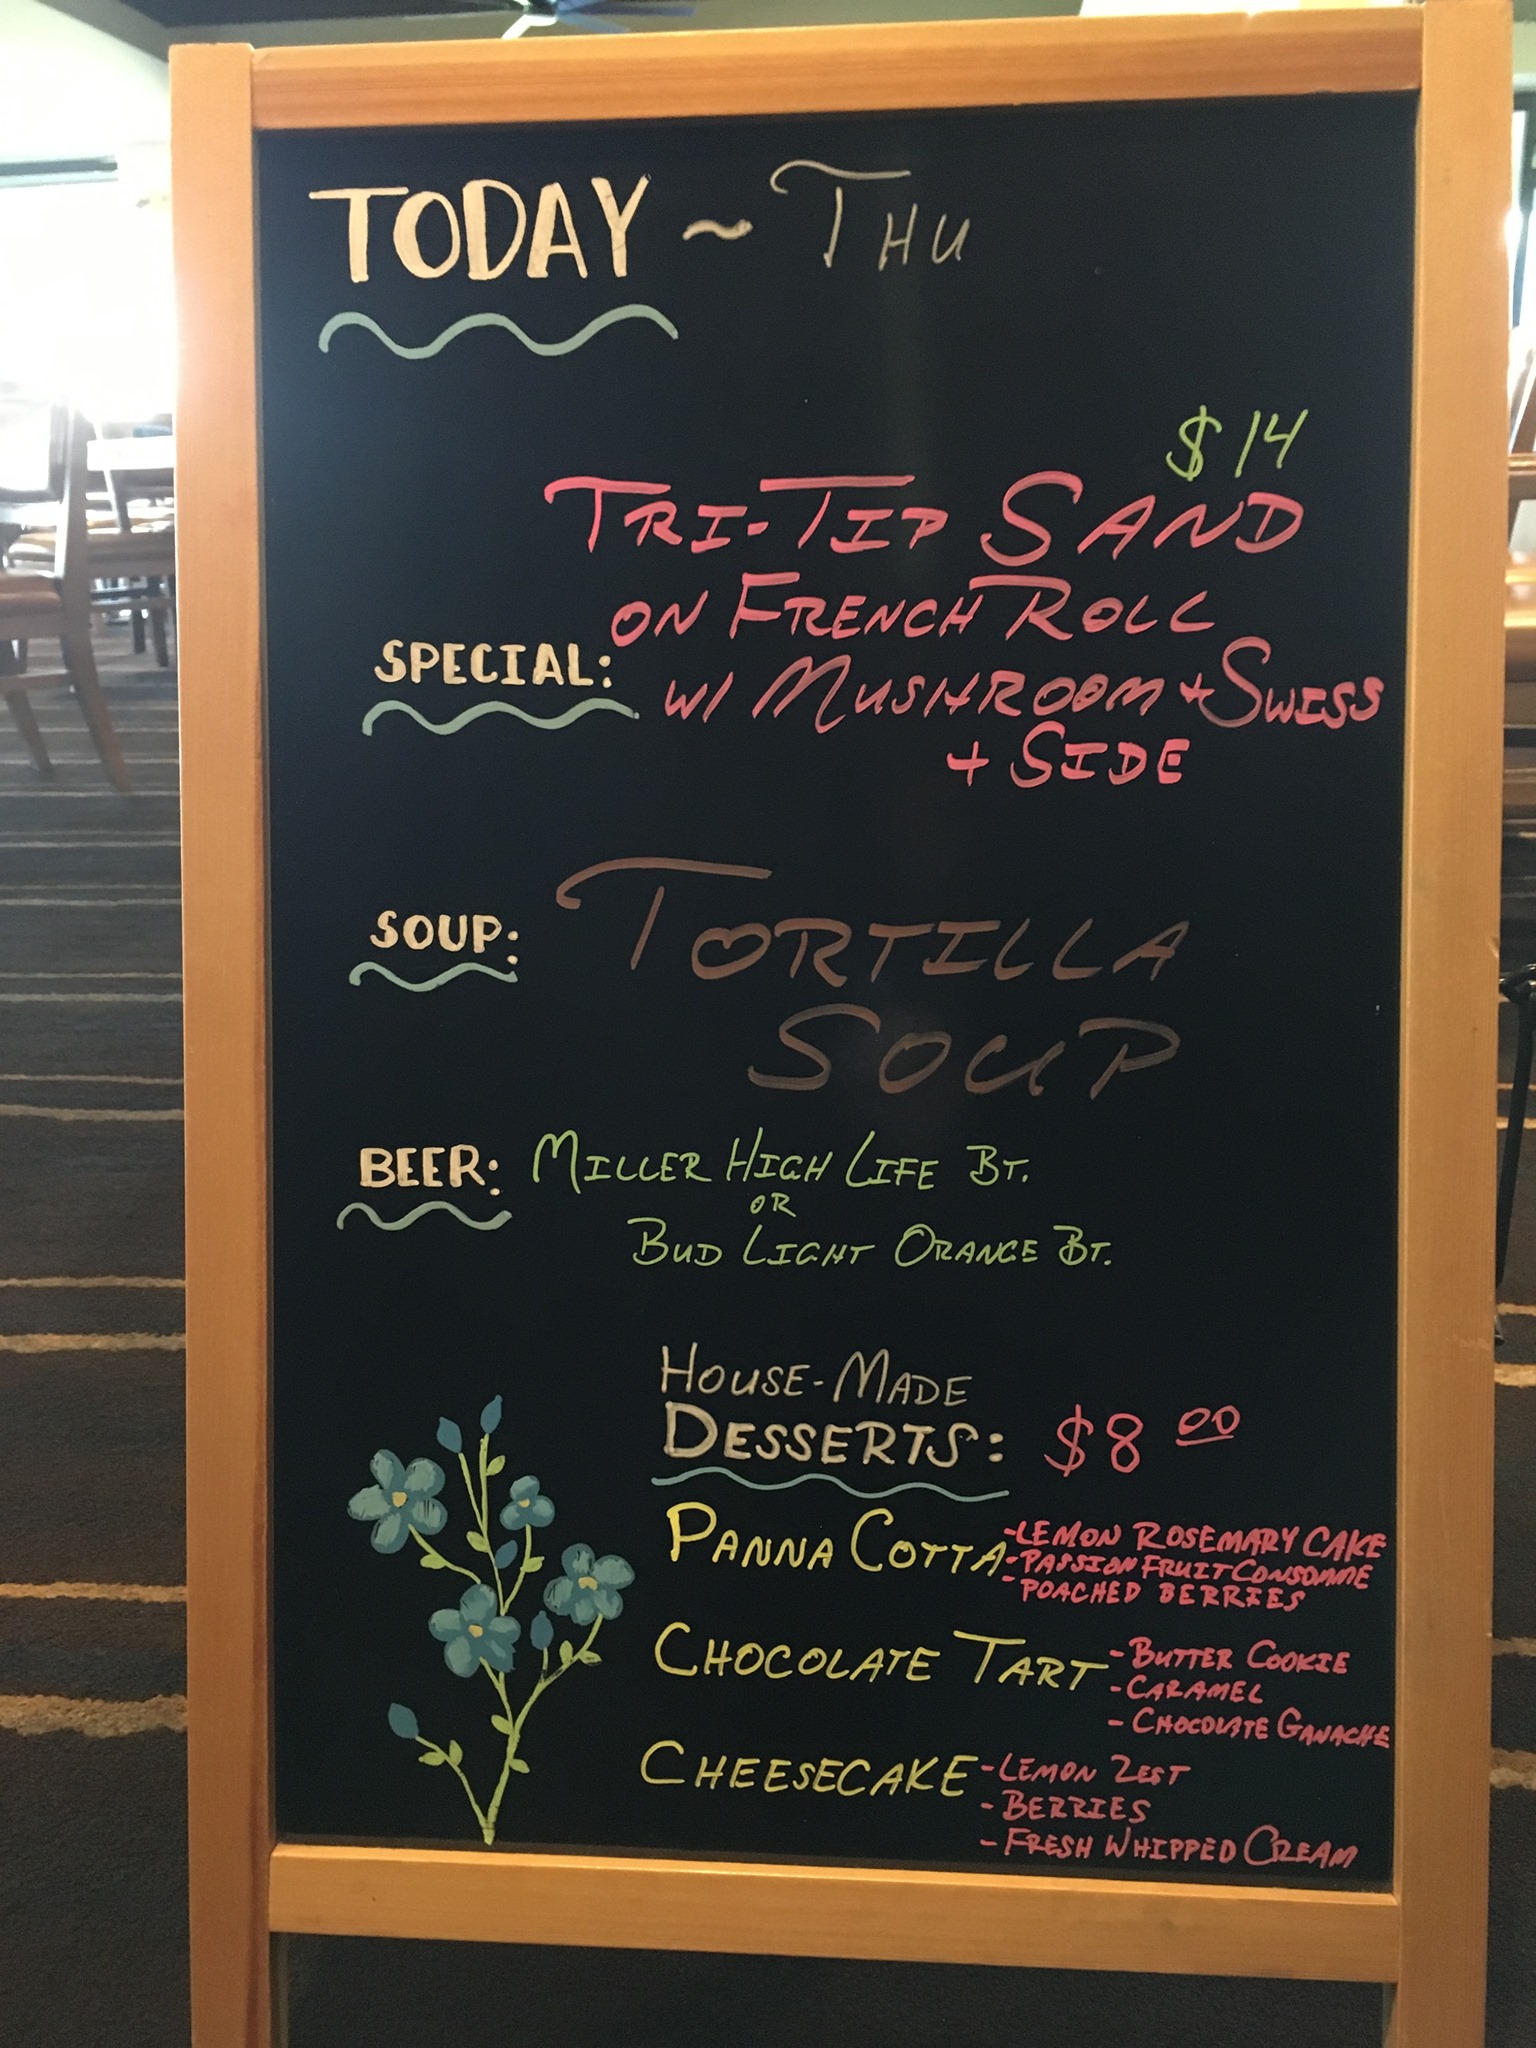 TODAY ~ THU
$14
TRI-TIP SAND
ON FRENCH ROLL
SPECIAL: W/ MUSHROOM + SWISS
+ SIDE
SOUP: TORTILLA
SOUP
BEER: MILLER HIGH LIFE BT.
OR
BUD LIGHT ORANGE BT.
HOUSE-MADE
DESSERTS: $8 00
PANNA COTTA - LEMON ROSEMARY CAKE
- PASSION FRUIT CONSOMME
- POACHED BERRIES
CHOCOLATE TART - BUTTER COOKIE
- CARAMEL
- CHOCOLATE GANACHE
CHEESECAKE - LEMON ZEST
- BERRIES
- FRESH WHIPPED CREAM